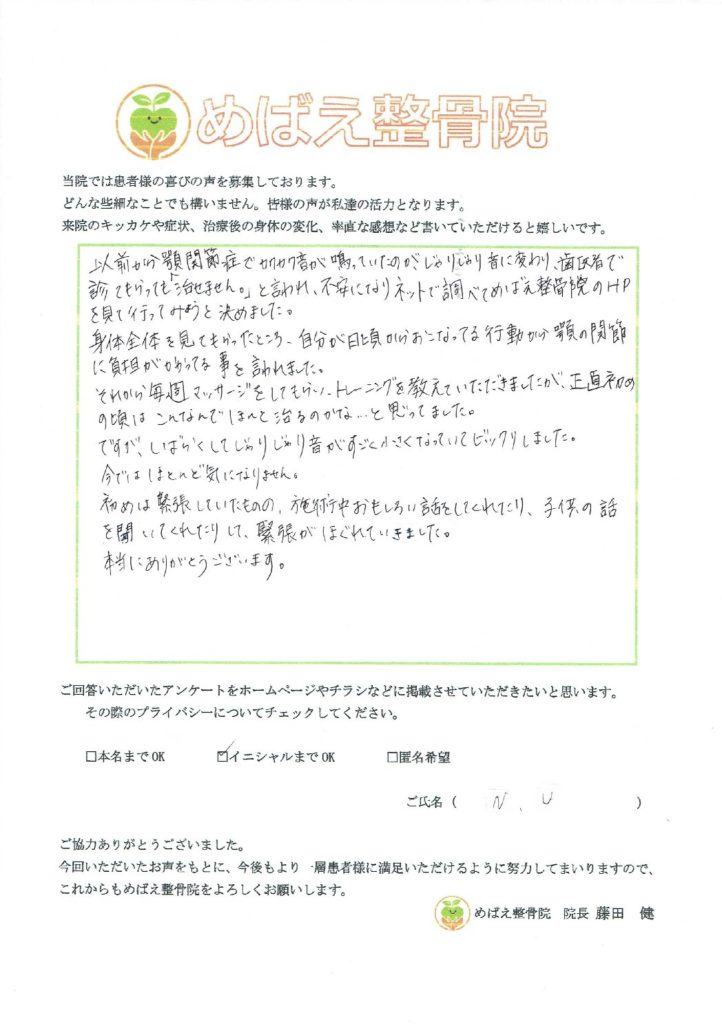 めばえ整骨院
当院では患者様の喜びの声を募集しております。
どんな些細なことでも構いません。皆様の声が私達の活力となります。
来院のキッカケや症状、治療後の身体の変化、率直な感想など書いていただけると嬉しいです。
以前から顎関節症でカクカク音が鳴っていたのがじゃりじゃり音に変わり、歯医者で
診てもらっても「治せません。」と言われ、不安になりネットで調べてめばえ整骨院のHP
を見て行ってみようと決めました。
身体全体を見てもらったところ、自分が日頃からおこなってる行動から顎の関節
に負担がかかってる事を言われました。
それから毎週マッサージをしてもらい、トレーニングを教えていただきましたが、正直初め
の頃はこんなんでほんと治るのかな…と思ってました。
ですが、しばらくしてじゃりじゃり音がすごく小さくなっていてビックリしました。
今ではほとんど気になりません。
初めは緊張していたものの、施術中おもしろい話をしてくれたり、子供の話
を聞いてくれたりして、緊張がほぐれていきました。
本当にありがとうございます。
ご回答いただいたアンケートをホームページやチラシなどに掲載させていただきたいと思います。
その際のプライバシーについてチェックしてください。
□本名までOK ☑イニシャルまでOK □匿名希望
ご氏名（ N、U ）
ご協力ありがとうございました。
今回いただいたお声をもとに、今後もより一層患者様に満足いただけるように努力してまいりますので、
これからもめばえ整骨院をよろしくお願いします。
めばえ整骨院 院長 藤田 健